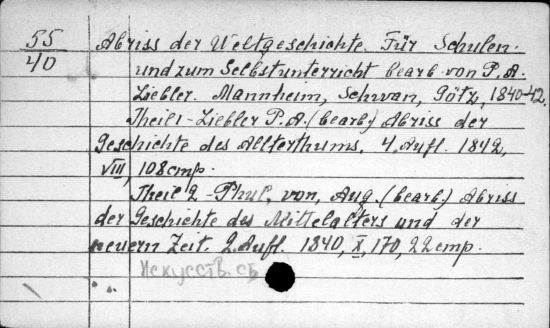 55
40
Abriss der Weltgeschichte. Für Schulen
und zum Selbstunterricht bearb. von P. A.
Ziebler. Mannheim, Schwan, Götz, 1840-42.
Theil 1 - Ziebler P. A. (bearb.) Abriss der
Geschichte des Allterthums. 4. Aufl. 1842,
VIII, 108 стр.
Theil 2 - Phul, von, Aug. (bearb.) Abriss
der Geschichte des Mittelalters und der
neuern Zeit. 2. Aufl. 1840, X, 170, 22 стр.
Искусств. сб